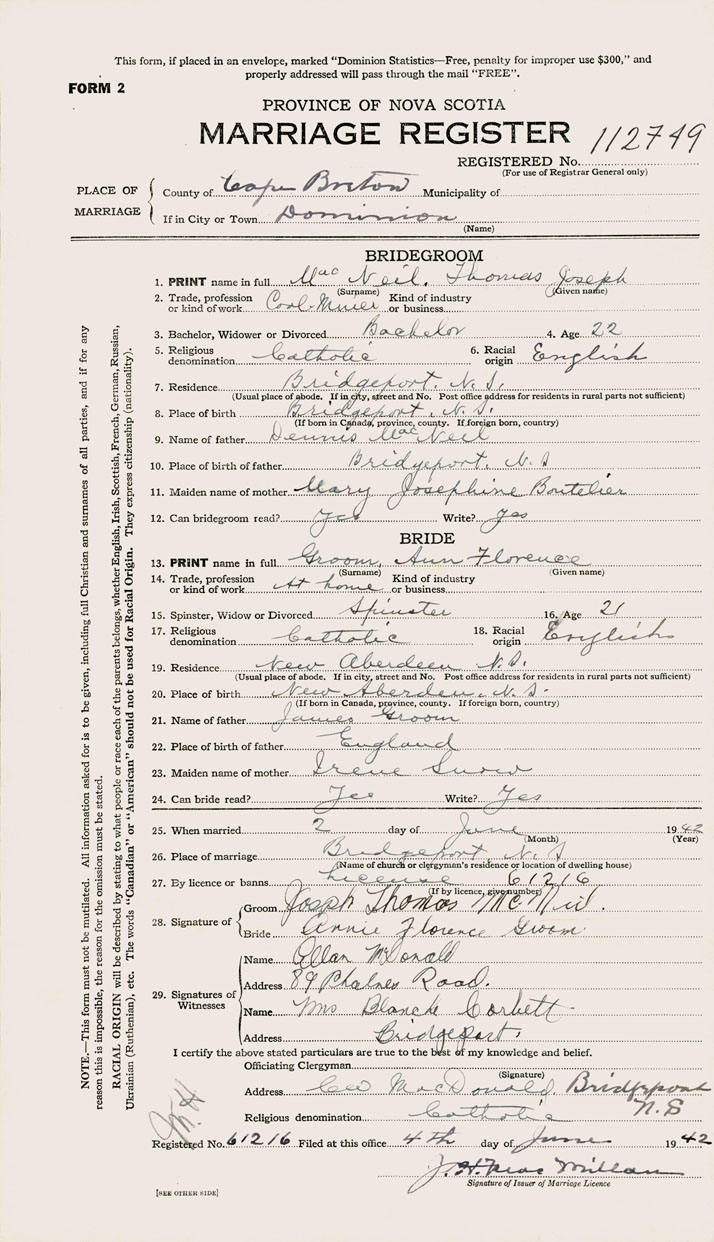 This form, if placed in an envelope, marked "Dominion Statistics—Free, penalty for improper use $300," and
properly addressed will pass through the mail "FREE".
FORM 2
PROVINCE OF NOVA SCOTIA
MARRIAGE REGISTER 112749
REGISTERED No.
(For use of Registrar General only)
PLACE OF MARRIAGE
County of Cape Breton Municipality of
If in City or Town Dominion
(Name)
BRIDEGROOM
1. PRINT name in full MacNeil, Thomas Joseph
(Surname) (Given name)
2. Trade, profession or kind of work Coal-Miner Kind of industry or business
3. Bachelor, Widower or Divorced Bachelor 4. Age 22
5. Religious denomination Catholic 6. Racial origin English
7. Residence Bridgeport, N.S.
(Usual place of abode. If in city, street and No. Post office address for residents in rural parts not sufficient)
8. Place of birth Bridgeport, N.S.
(If born in Canada, province, county. If foreign born, country)
9. Name of father Dennis MacNeil
10. Place of birth of father Bridgeport, N.S
11. Maiden name of mother Mary Josephine Boutelier
12. Can bridegroom read? Yes Write? Yes
BRIDE
13. PRINT name in full Groom, Ann Florence
(Surname) (Given name)
14. Trade, profession or kind of work At home Kind of industry or business
15. Spinster, Widow or Divorced Spinster 16. Age 21
17. Religious denomination Catholic 18. Racial origin English
19. Residence New Aberdeen N.S.
(Usual place of abode. If in city, street and No. Post office address for residents in rural parts not sufficient)
20. Place of birth New Aberdeen, N.S.
(If born in Canada, province, county. If foreign born, country)
21. Name of father James Groom
22. Place of birth of father England
23. Maiden name of mother Irene Snow
24. Can bride read? Yes Write? Yes
25. When married 2 day of June 1942
(Month) (Year)
26. Place of marriage Bridgeport N.S
(Name of church or clergyman's residence or location of dwelling house)
27. By licence or banns License 61216
(If by licence, give number)
28. Signature of
Groom Joseph Thomas McNeil.
Bride Annie Florence Groom
29. Signatures of Witnesses
Name Allan McDonald
Address 89 Road.
Name Mrs Blanche Corbett
Address Bridgeport,
I certify the above stated particulars are true to the best of my knowledge and belief.
Officiating Clergyman
(Signature)
Address MacDonald, Bridgeport
N.S
Religious denomination Catholic
Registered No. 61216 Filed at this office 4th day of June 1942
J. H. MacMillan
Signature of Issuer of Marriage Licence
[SEE OTHER SIDE]
NOTE.—This form must not be mutilated. All information asked for is to be given, including full Christian and surnames of all parties, and if for any
reason this is impossible, the reason for the omission must be stated.
RACIAL ORIGIN will be described by stating to what people or race each of the parents belongs, whether English, Irish, Scottish, French, German, Russian,
Ukrainian (Ruthenian), etc. The words "Canadian" or "American" should not be used for Racial Origin. They express citizenship (nationality).